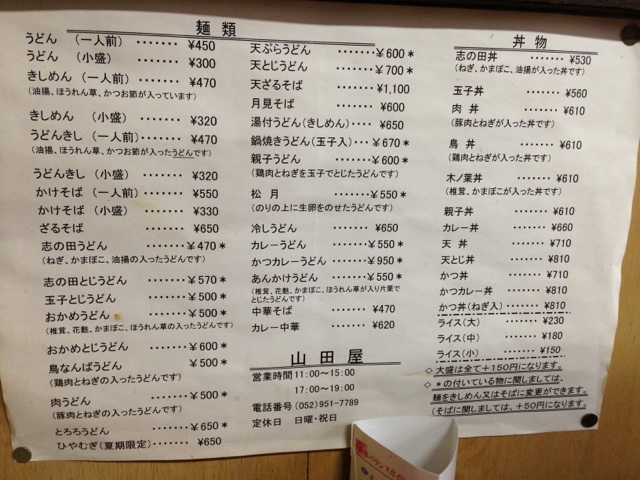 麺類
うどん （一人前）・・・・・・・ ¥450
うどん （小盛）・・・・・・・ ¥300
きしめん （一人前）・・・・・・ ¥470
（油揚、ほうれん草、かつお節が入っています）
きしめん （小盛）・・・・・・ ¥320
うどんきし （一人前）・・・・・ ¥470
（油揚、ほうれん草、かつお節が入ったうどんです）
うどんきし （小盛）・・・・・・ ¥320
かけそば （一人前）・・・・・・ ¥550
かけそば （小盛）・・・・・・ ¥330
ざるそば ・・・・・・・ ¥650
志の田うどん ・・・・・・ ¥470＊
（ねぎ、かまぼこ、油揚の入ったうどんです）
志の田とじうどん ・・・・・ ¥570＊
玉子とじうどん ・・・・・ ¥500＊
おかめうどん ・・・・・・ ¥500＊
（椎茸、花麩、かまぼこ、ほうれん草の入ったうどんです）
おかめとじうどん ・・・・・・ ¥600＊
鳥なんばうどん ¥500＊
（鶏肉とねぎの入ったうどんです）
肉うどん ・・・・・・ ¥500＊
（豚肉とねぎの入ったうどんです）
とろろうどん ・・・・・・ ¥650＊
ひやむぎ（夏期限定）・・・・・・ ¥650
天ぷらうどん ・・・・・・¥600＊
天とじうどん ・・・・・・¥700＊
天ざるそば ・・・・・・ ¥1,100
月見そば ・・・・・・ ¥600
湯付うどん（きしめん）・・・・ ¥650
鍋焼きうどん（玉子入）・・・ ¥670＊
親子うどん ・・・・・・ ¥600＊
（鶏肉とねぎを玉子でとじたうどんです）
松月 ・・・・・・ ¥550＊
（のりの上に生卵をのせたうどんです）
冷しうどん ・・・・・・ ¥650
カレーうどん ・・・・・・ ¥550＊
かつカレーうどん ・・・・・ ¥950＊
あんかけうどん ・・・・・ ¥550＊
（椎茸、花麩、かまぼこ、ほうれん草が入り片栗で
とじたうどんです）
中華そば ・・・・・・ ¥470
カレー中華 ・・・・・・ ¥620
山田屋
営業時間 11:00～15:00
17:00～19:00
電話番号 (052)951-7789
定休日 日曜・祝日
丼物
志の田丼 ・・・・・・・ ¥530
（ねぎ、かまぼこ、油揚が入った丼です）
玉子丼 ・・・・・・ ¥560
肉丼 ・・・・・・ ¥610
（豚肉とねぎが入った丼です）
鳥丼 ・・・・・・ ¥610
（鶏肉とねぎが入った丼です）
木ノ葉丼 ・・・・・・ ¥610
（椎茸、かまぼこが入った丼です）
親子丼 ・・・・・・ ¥610
カレー丼 ・・・・・・ ¥660
天丼 ・・・・・・ ¥710
天とじ丼 ・・・・・・ ¥810
かつ丼 ・・・・・・ ¥710
かつカレー丼 ・・・・・・ ¥810
かつ丼（ねぎ入）・・・・・・ ¥810
ライス（大） ・・・・・・ ¥230
ライス（中） ・・・・・・ ¥180
ライス（小） ・・・・・・ ¥150
◇ 大盛は全て＋150円になります。
◇ ＊の付いている物に関しましては、
麺をきしめん又はそばに変更ができます。
（そばに関しましては、＋50円になります。）
バランスガイ